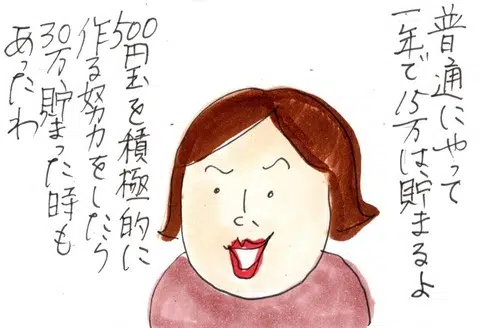 普通にやって
一年で15万は貯まるよ
500円玉を積極的に
作る努力をしたら
30万貯まった時も
あったわ